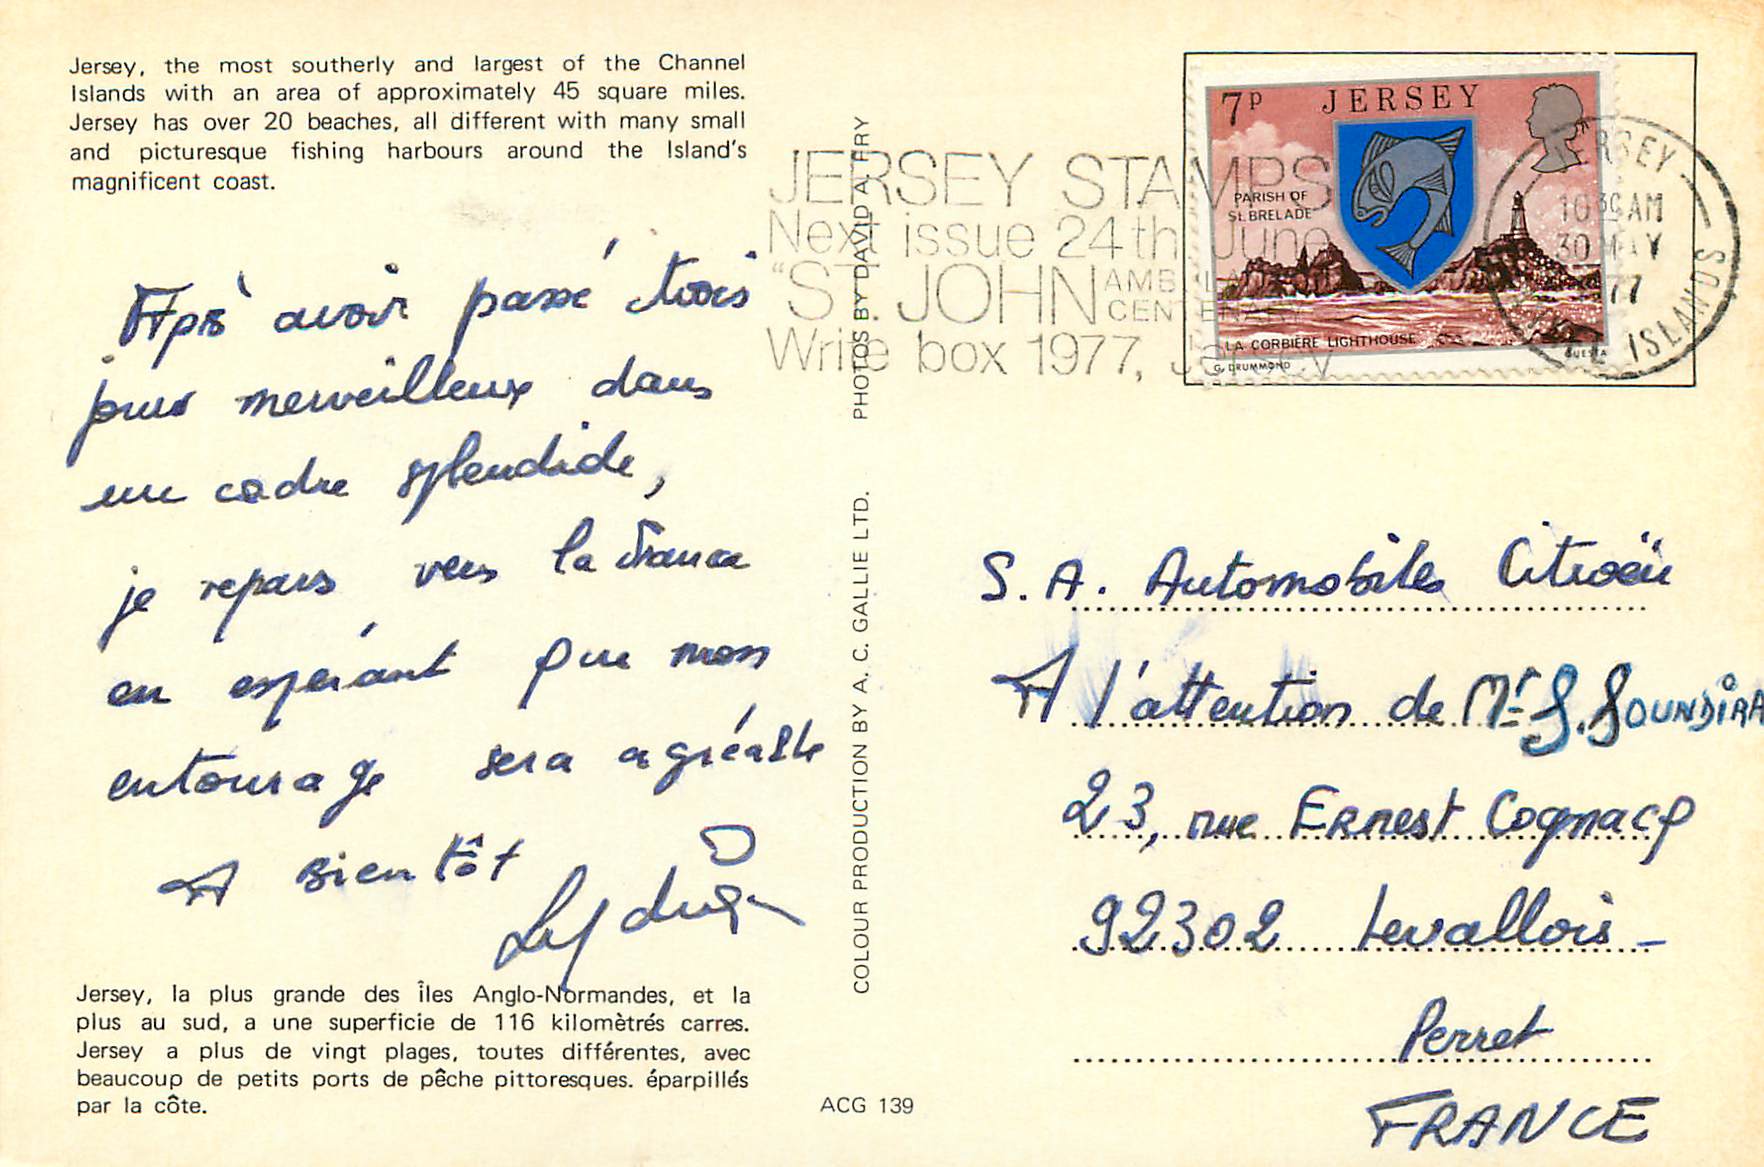 Jersey, the most southerly and largest of the Channel
Islands with an area of approximately 45 square miles.
Jersey has over 20 beaches, all different with many small
and picturesque fishing harbours around the Island's
magnificent coast.
Aprè avoir passé trois
jours merveilleux dans
un cadre splendide,
je repars vers la France
en espérant que mon
entourage sera agréable
A bientôt
Jersey, la plus grande des îles Anglo-Normandes, et la
plus au sud, a une superficie de 116 kilomètrés carres.
Jersey a plus de vingt plages, toutes différentes, avec
beaucoup de petits ports de pêche pittoresques. éparpillés
par la côte.
COLOUR PRODUCTION BY A. C. GALLIE LTD. PHOTOS BY DAVID A. FRY
ACG 139
JERSEY STAMPS
Next issue 24th June
"ST. JOHN AMBULANCE
CENTENARY
Write box 1977, Jersey
7P JERSEY
PARISH OF
ST. BRELADE
LA CORBIÈRE LIGHTHOUSE
G. DRUMMOND
QUESTA
JERSEY
10 30 AM
30 MAY
77
CHANNEL ISLANDS
S. A. Automobiles Citroën
A l'attention de Mr G. GOUNDIRA
23, rue Ernest Cognacq
92302 Levallois-
Perret
FRANCE